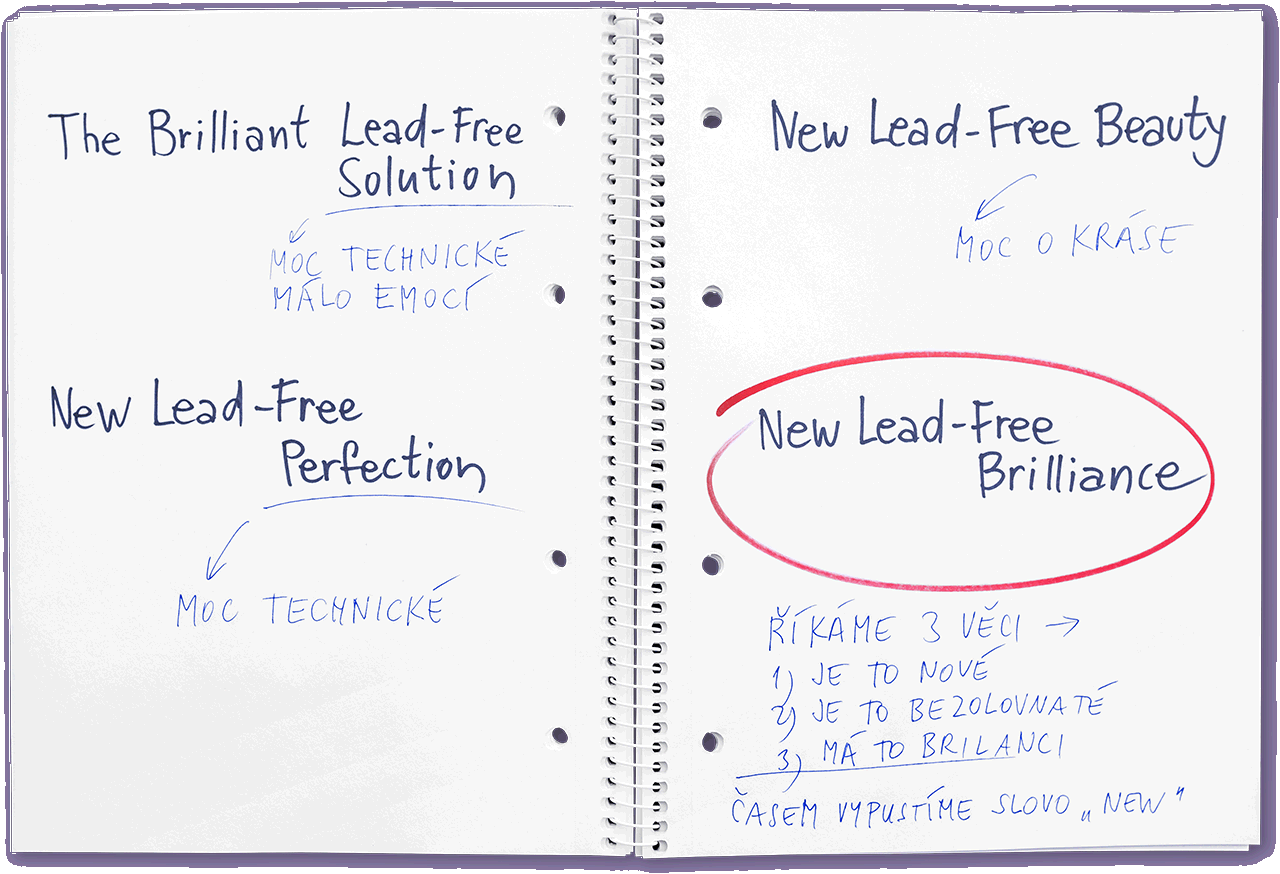 The Brilliant Lead-Free
Solution
MOC TECHNICKÉ
MÁLO EMOCÍ
New Lead-Free
Perfection
MOC TECHNICKÉ
New Lead-Free Beauty
MOC O KRÁSE
New Lead-Free
Brilliance
ŘÍKÁME 3 VĚCI →
1) JE TO NOVÉ
2) JE TO BEZOLOVNATÉ
3) MÁ TO BRILANCI
ČASEM VYPUSTÍME SLOVO „NEW"